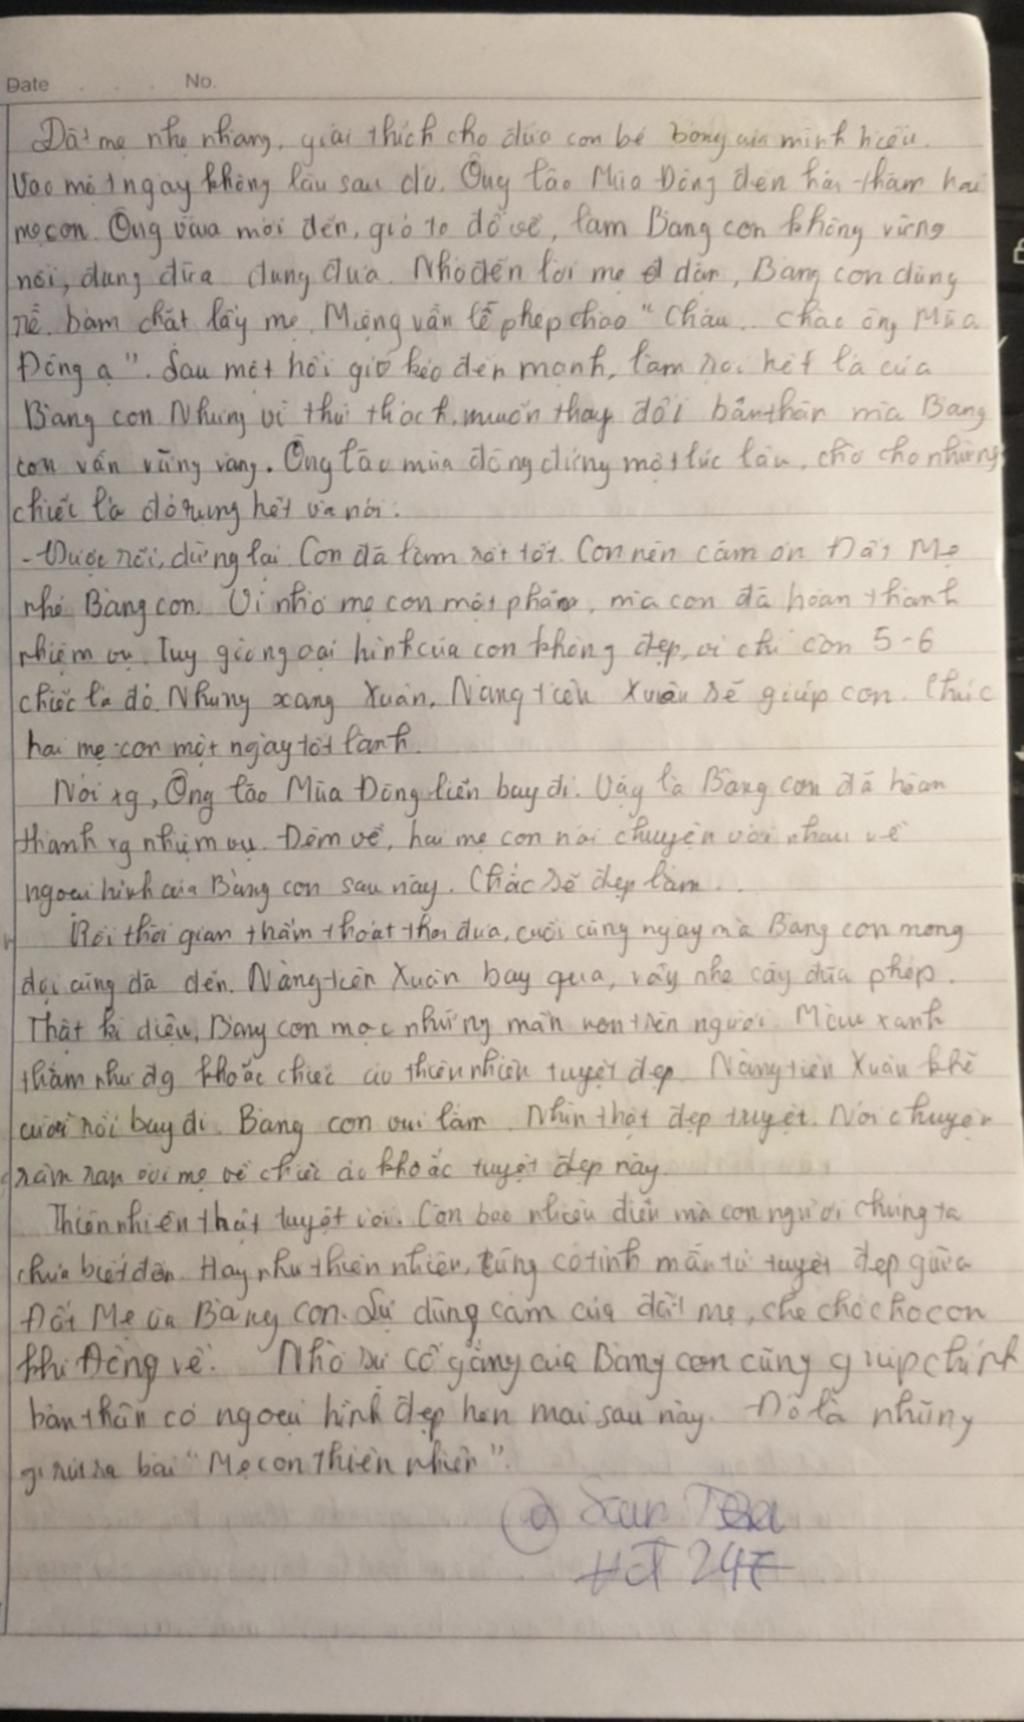 Date No.
Đất mẹ nhẹ nhàng, giải thích cho đứa con bé bỏng của mình hiểu.
Vào một ngày không lâu sau đó. Ông lão Mùa Đông đến hỏi thăm hai
mẹ con. Ông vừa mới đến, gió to đổ về, làm Bàng con không vững
nổi, đung đưa đung đưa. Nhớ đến lời mẹ dặn, Bàng con dùng
rễ bám chặt lấy mẹ. Miệng vẫn lễ phép chào "Cháu.. chào ông Mùa
Đông ạ". Sau một hồi gió kéo đến mạnh, làm rơi hết lá của
Bàng con. Nhưng vì thử thách, muốn thay đổi bản thân mà Bàng
con vẫn vững vàng. Ông lão mùa đông đứng một lúc lâu, chờ cho những
chiếc lá đỏ rụng hết và nói:
- Được rồi, dừng lại. Con đã làm rất tốt. Con nên cảm ơn Đất Mẹ
nhé Bàng con. Vì nhờ mẹ con một phần, mà con đã hoàn thành
nhiệm vụ. Tuy giờ ngoại hình của con không đẹp, vì chỉ còn 5-6
chiếc lá đỏ. Nhưng xang Xuân, Nàng tiên Xuân sẽ giúp con. Chúc
hai mẹ con một ngày tốt lành.
Nói xg, Ông lão Mùa Đông liền bay đi. Vậy là Bàng con đã hoàn
thành xg nhiệm vụ. Đêm về, hai mẹ con nói chuyện với nhau về
ngoại hình của Bàng con sau này. Chắc sẽ đẹp lắm...
Rồi thời gian thấm thoát thoi đưa, cuối cùng ngày mà Bàng con mong
đợi cũng đã đến. Nàng tiên Xuân bay qua, vẩy nhẹ cây đũa phép.
Thật kì diệu, Bàng con mọc những mần non trên người. Màu xanh
thắm như đg khoác chiếc áo thiên nhiên tuyệt đẹp. Nàng tiên Xuân khẽ
cười rồi bay đi. Bàng con vui lắm. Nhìn thật đẹp tuyệt. Nói chuyện
râm ran với mẹ về chiếc áo khoác tuyệt đẹp này.
Thiên nhiên thật tuyệt vời. Còn bao nhiêu điều mà con người chúng ta
chưa biết đến. Hay như thiên nhiên, cũng có tình mẫu tử tuyệt đẹp giữa
Đất Mẹ và Bàng con. Sự dũng cảm của đất mẹ, che chở cho con
khi Đông về. Nhờ sự cố gắng của Bàng con cũng giúp chính
bản thân có ngoại hình đẹp hơn mai sau này. Đó là những
gì rút ra bài "Mẹ con thiên nhiên".
@ San
HĐT 247